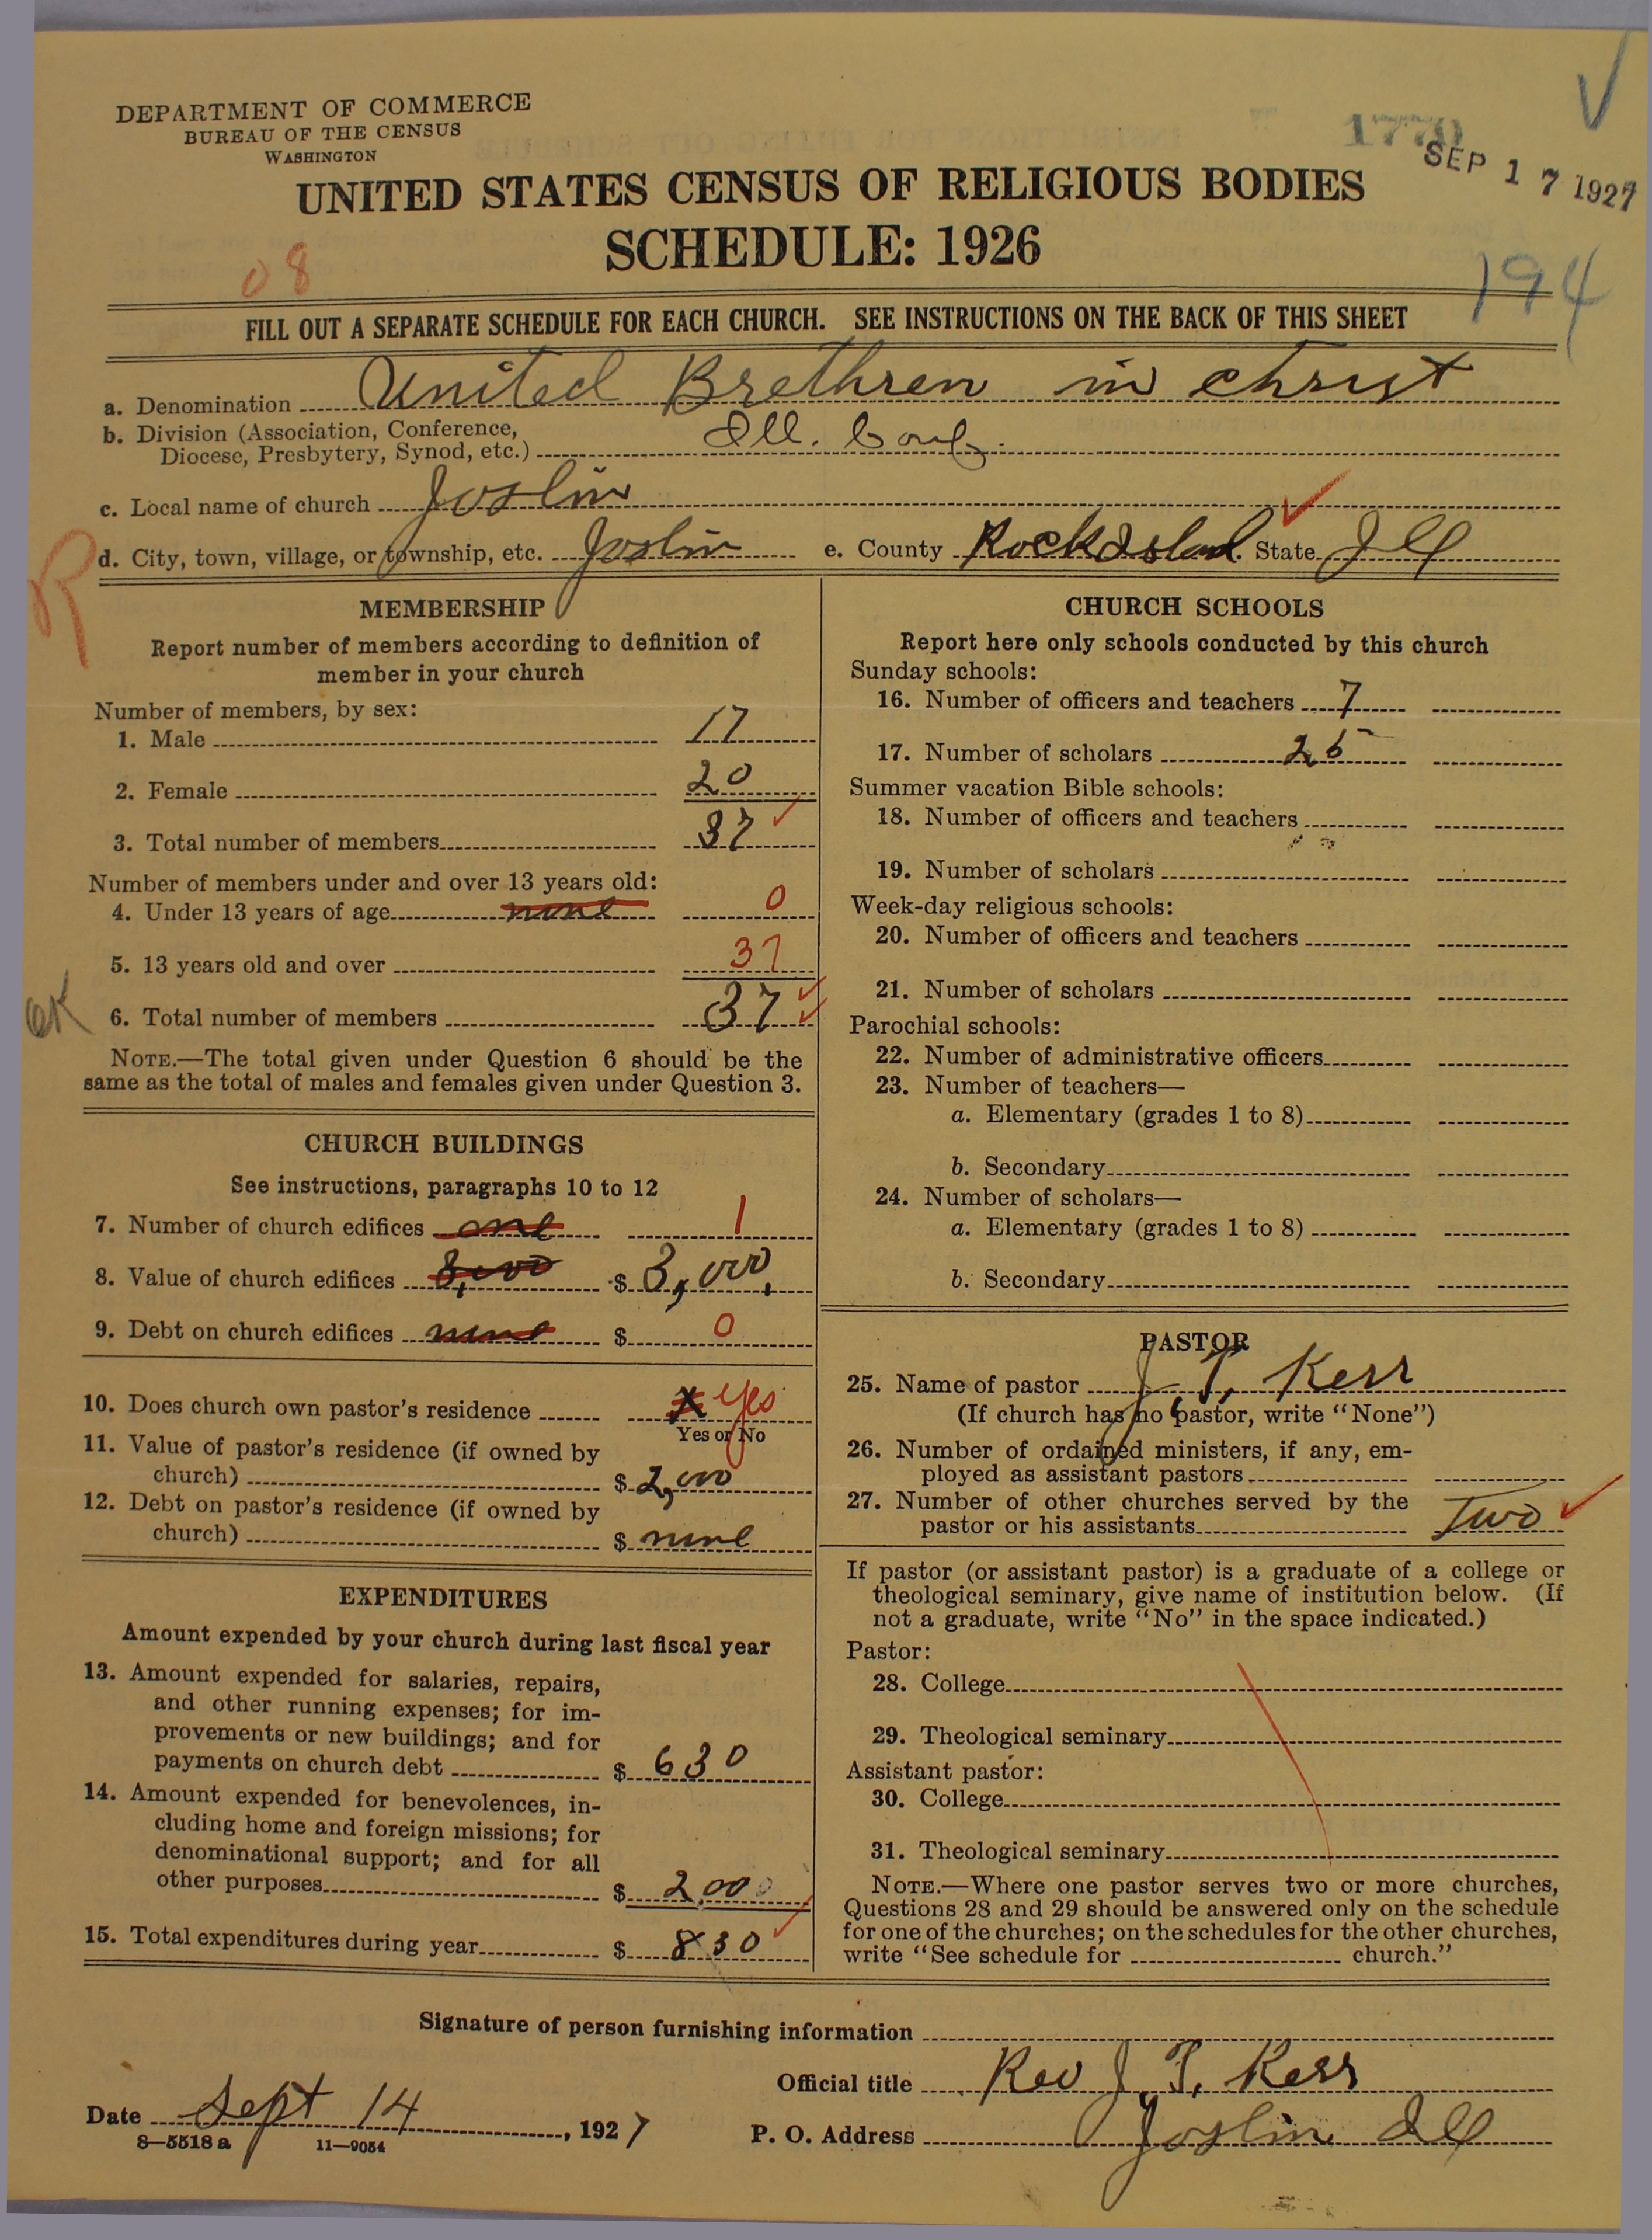 DEPARTMENT OF COMMERCE
BUREAU OF THE CENSUS
WASHINGTON
1770
SEP 17 1927
UNITED STATES CENSUS OF RELIGIOUS BODIES
SCHEDULE: 1926
08
194
FILL OUT A SEPARATE SCHEDULE FOR EACH CHURCH. SEE INSTRUCTIONS ON THE BACK OF THIS SHEET
a. Denomination United Brethren in Christ
b. Division (Association, Conference,
Diocese, Presbytery, Synod, etc.) Ill. Conf.
c. Local name of church Joslin
d. City, town, village, or township, etc. Joslin e. County Rock Island. State Ill
R
MEMBERSHIP
Report number of members according to definition of
member in your church
Number of members, by sex:
1. Male 17
2. Female 20
3. Total number of members 37
Number of members under and over 13 years old:
4. Under 13 years of age none 0
5. 13 years old and over 37
OK
6. Total number of members 37
NOTE.—The total given under Question 6 should be the
same as the total of males and females given under Question 3.
CHURCH BUILDINGS
See instructions, paragraphs 10 to 12
7. Number of church edifices one 1
8. Value of church edifices 3,000 $ 3,000,
9. Debt on church edifices none $ 0
10. Does church own pastor's residence X Yes
Yes or No
11. Value of pastor's residence (if owned by
church) $ 2,000
12. Debt on pastor's residence (if owned by
church) $ none
EXPENDITURES
Amount expended by your church during last fiscal year
13. Amount expended for salaries, repairs,
and other running expenses; for im-
provements or new buildings; and for
payments on church debt $ 630
14. Amount expended for benevolences, in-
cluding home and foreign missions; for
denominational support; and for all
other purposes $ 2.00
15. Total expenditures during year $ 830
CHURCH SCHOOLS
Report here only schools conducted by this church
Sunday schools:
16. Number of officers and teachers 7
17. Number of scholars 25
Summer vacation Bible schools:
18. Number of officers and teachers
19. Number of scholars
Week-day religious schools:
20. Number of officers and teachers
21. Number of scholars
Parochial schools:
22. Number of administrative officers
23. Number of teachers—
a. Elementary (grades 1 to 8)
b. Secondary
24. Number of scholars—
a. Elementary (grades 1 to 8)
b. Secondary
PASTOR
25. Name of pastor J. T. Kerr
(If church has no pastor, write "None")
26. Number of ordained ministers, if any, em-
ployed as assistant pastors
27. Number of other churches served by the
pastor or his assistants Two
If pastor (or assistant pastor) is a graduate of a college or
theological seminary, give name of institution below. (If
not a graduate, write "No" in the space indicated.)
Pastor:
28. College
29. Theological seminary
Assistant pastor:
30. College
31. Theological seminary
NOTE.—Where one pastor serves two or more churches,
Questions 28 and 29 should be answered only on the schedule
for one of the churches; on the schedules for the other churches,
write "See schedule for church."
Signature of person furnishing information
Official title Rev J. T. Kerr
Date Sept 14, 1927
P. O. Address Joslin Ill
8—5518 a 11—9054